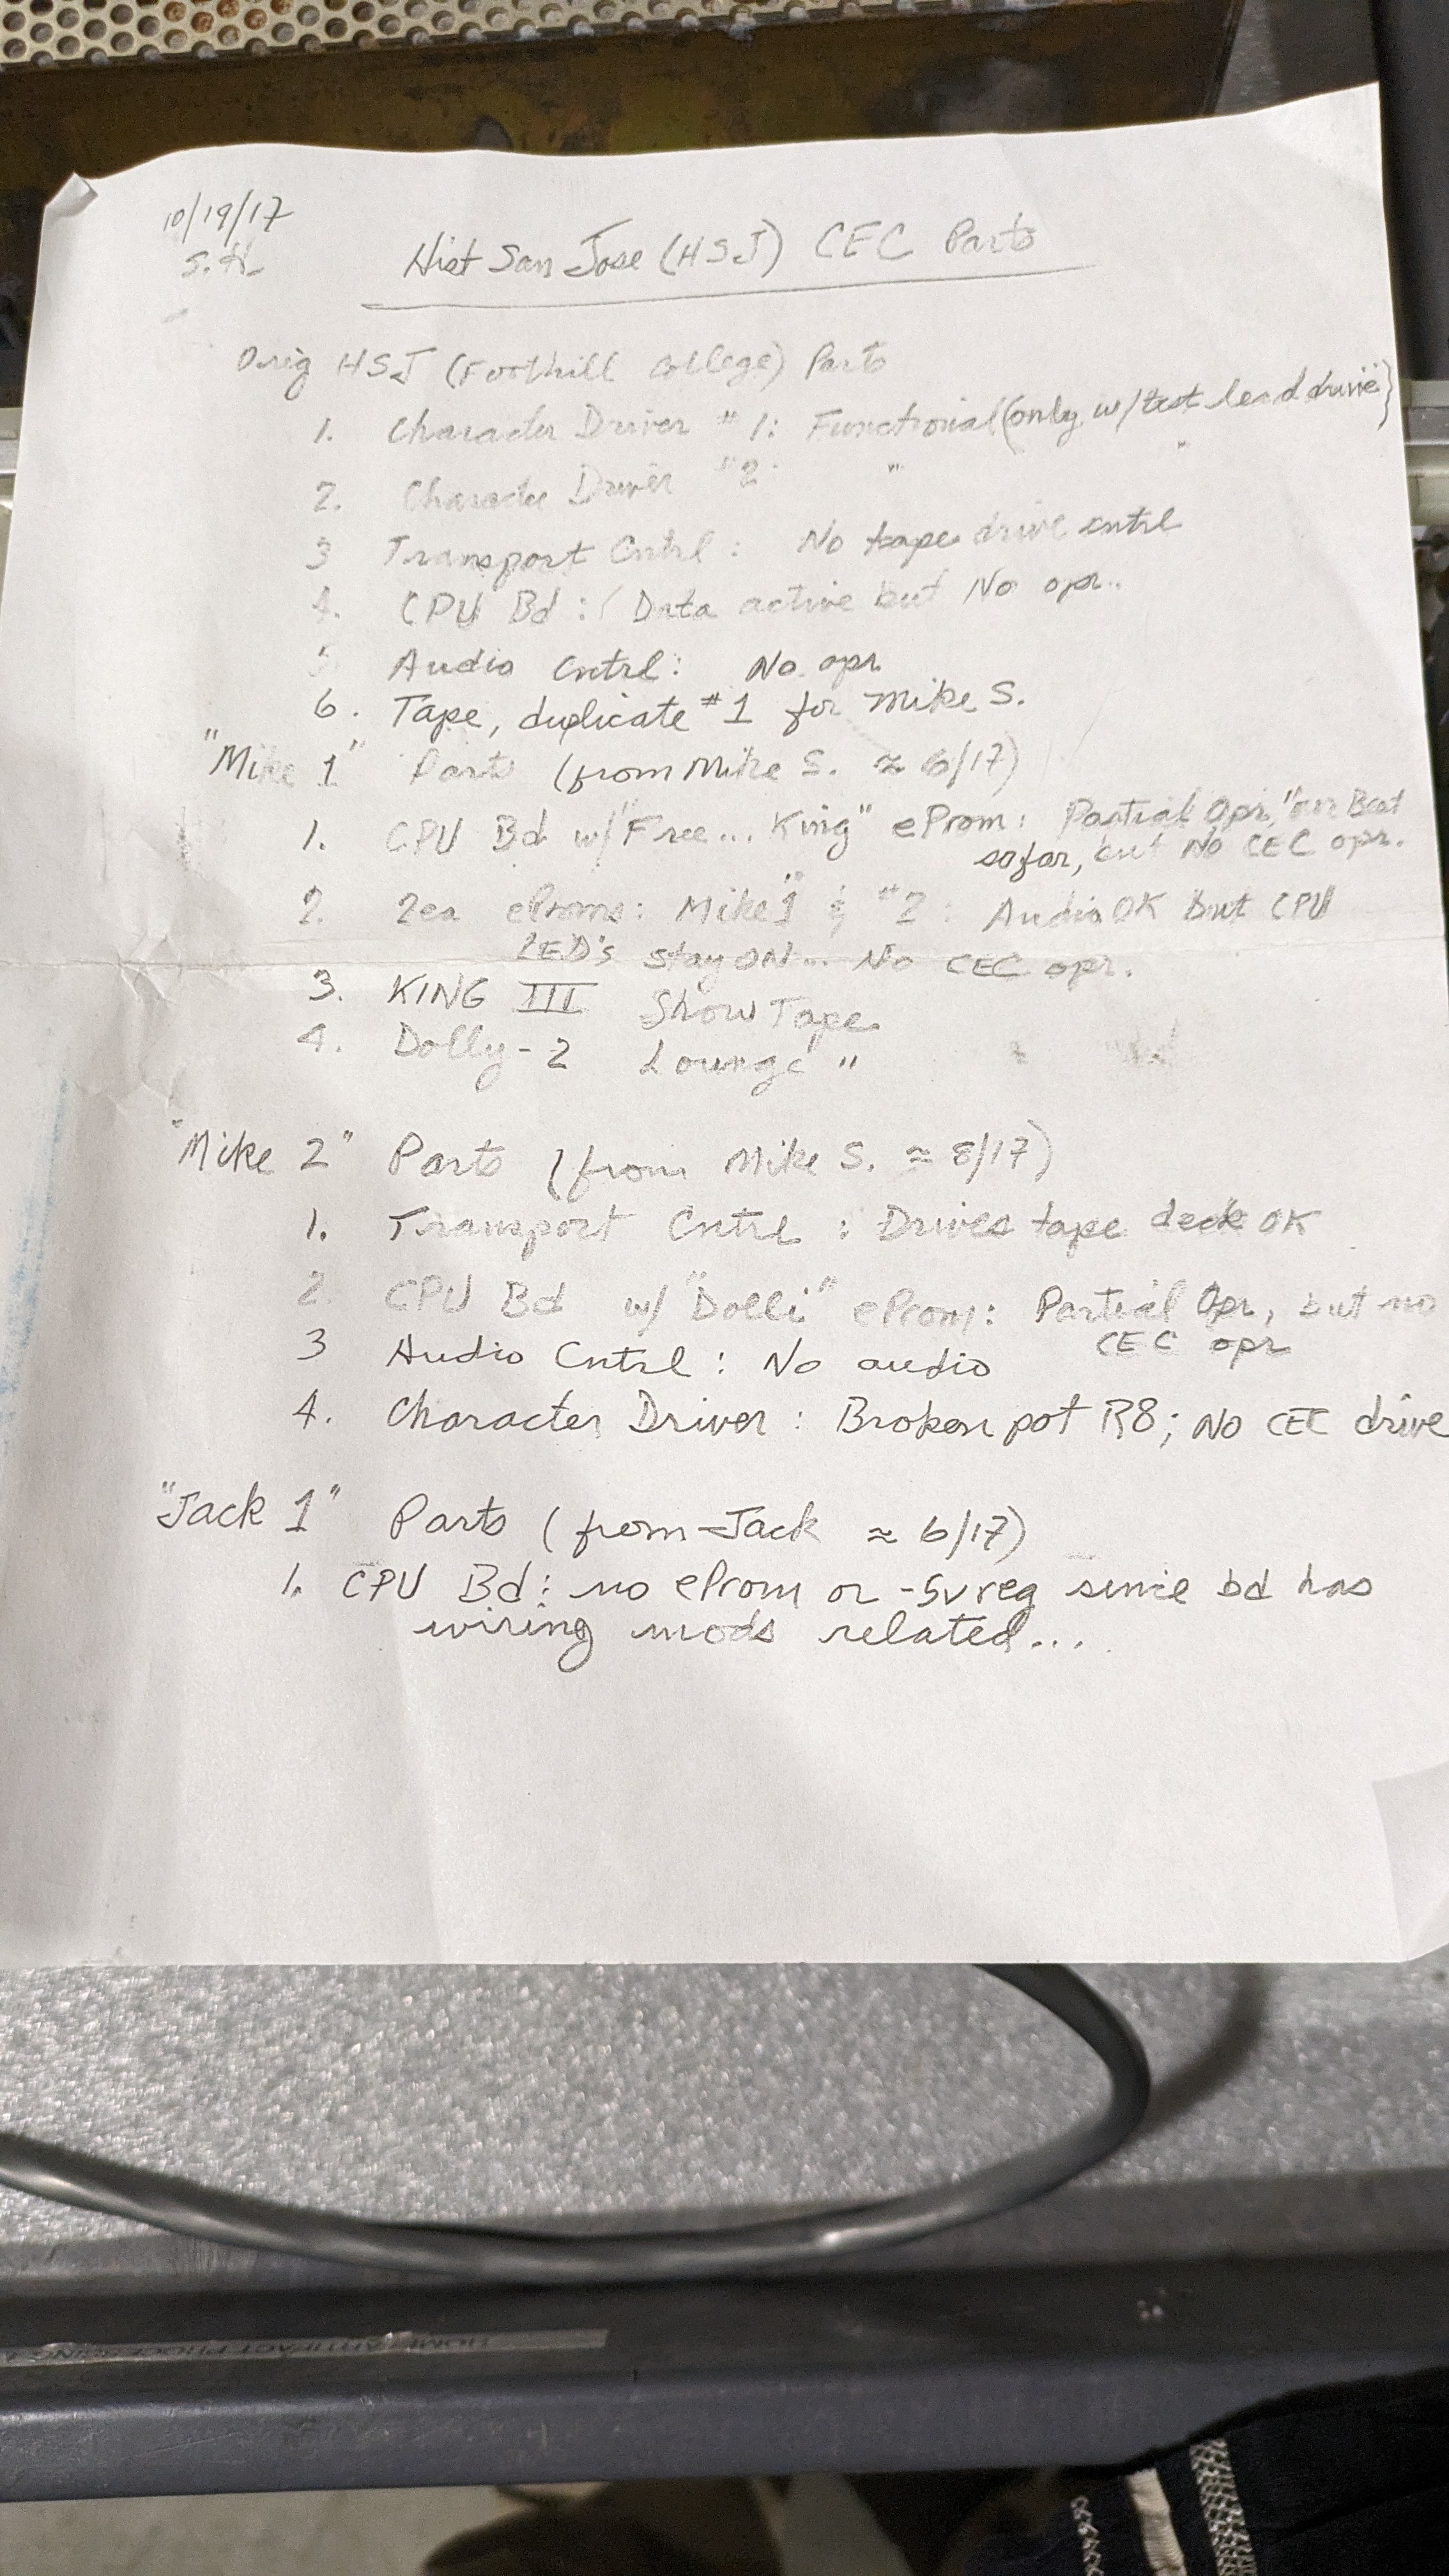 10/19/17
S.H.
Hist San Jose (HSJ) CEC Parts
Orig HSJ (Foothill College) Parts
1. Character Driver #1: Functional (only w/test lead drive)
2. Character Driver #2: " "
3 Transport Cntrl: No tape drive cntrl
4. CPU Bd: Data active but No opr..
5 Audio Cntrl: No opr.
6. Tape, duplicate #1 for Mike S.
"Mike 1" Parts (from Mike S. ≈ 6/17)
1. CPU Bd w/"Free... King" eProm: Partial Opr, Best
sofar, but No CEC opr.
2. 2ea eProms: Mike "1 & #2: Audio OK but CPU
LED's stay ON... No CEC opr.
3. KING III Show Tape
4. Dolly-2 Lounge "
"Mike 2" Parts (from Mike S. ≈ 8/17)
1. Transport Cntrl: Drives tape deck OK
2. CPU Bd w/ "Dolli" eProm: Partial Opr, but no
CEC opr
3 Audio Cntrl: No audio
4. Character Driver: Broken pot R8; No CEC drive
"Jack 1" Parts (from Jack ≈ 6/17)
1. CPU Bd: no eProm or -5v reg since bd has
wiring mods related...